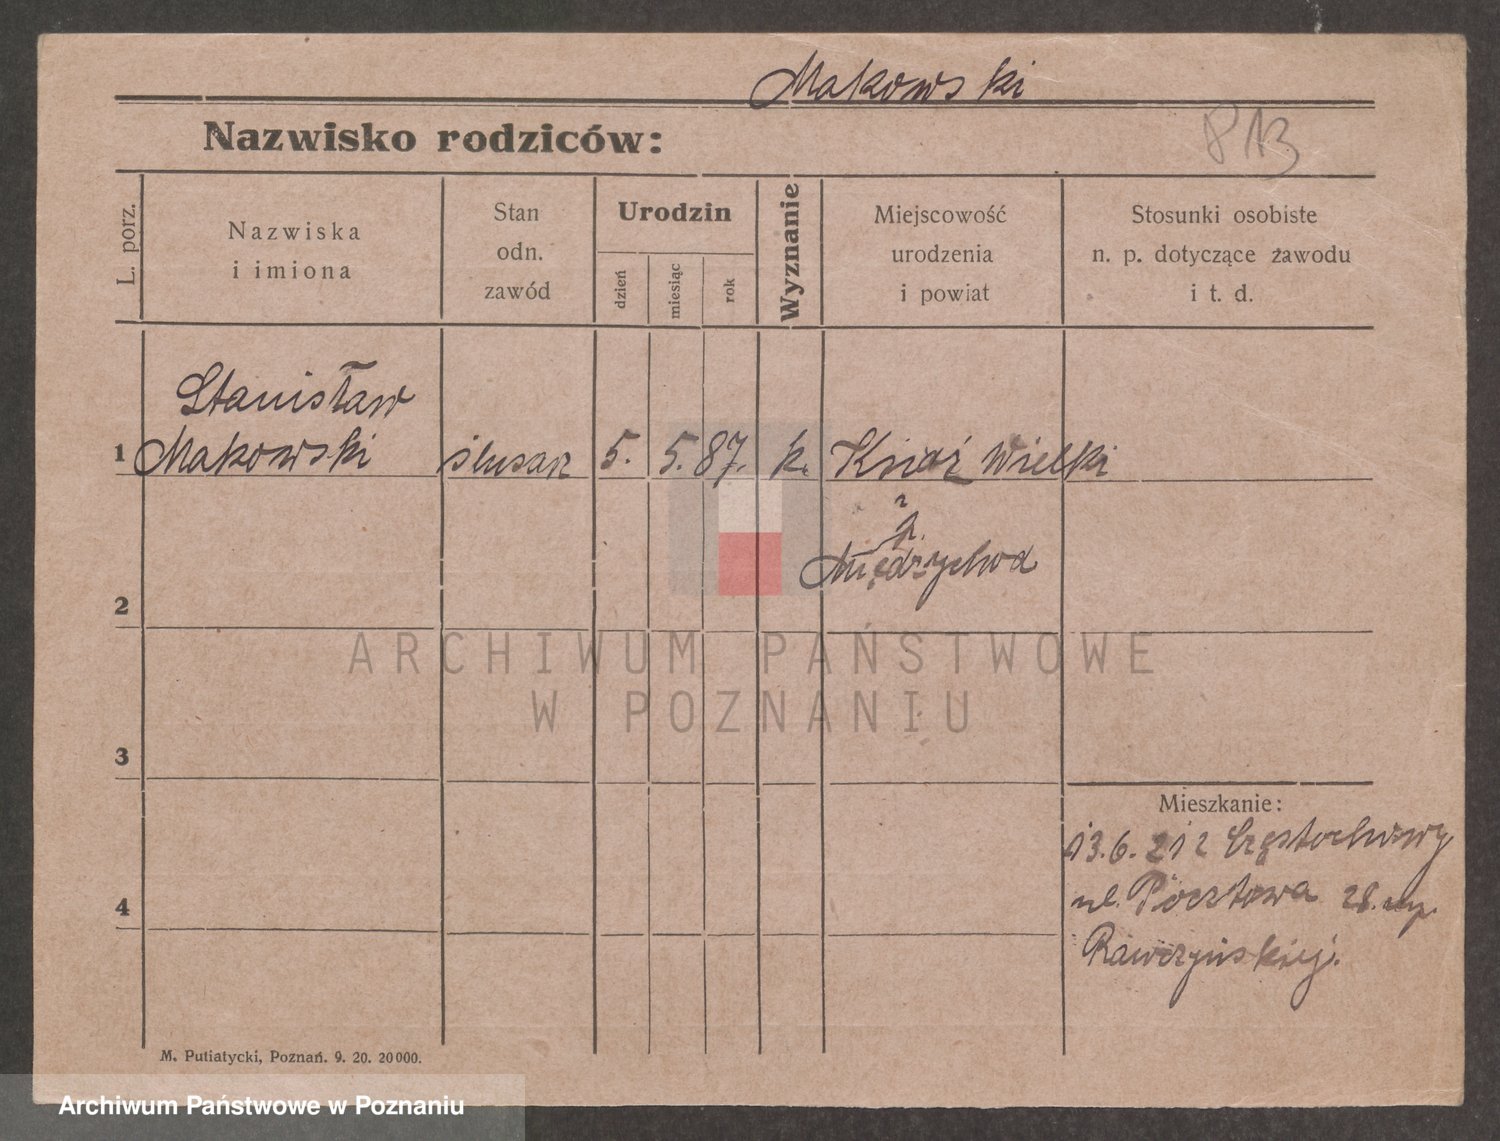 Makowski
Nazwisko rodziców:
L. porz.
Nazwiska
i imiona
Stan
odn.
zawód
Urodzin
dzień
miesiąc
rok
Wyznanie
Miejscowość
urodzenia
i powiat
Stosunki osobiste
n. p. dotyczące zawodu
i t. d.
Stanisław
1 Makowski ślusarz 5. 5. 87. k. Książ Wielki
Międzychod
2
ARCHIWUM PAŃSTWOWE
W POZNANIU
3
Mieszkanie:
13.6.21 z Częstochowy
ul. Pocztowa 28.
4
Rawczyńskiej.
M. Putiatycki, Poznań. 9. 20. 20000.
Archiwum Państwowe w Poznaniu